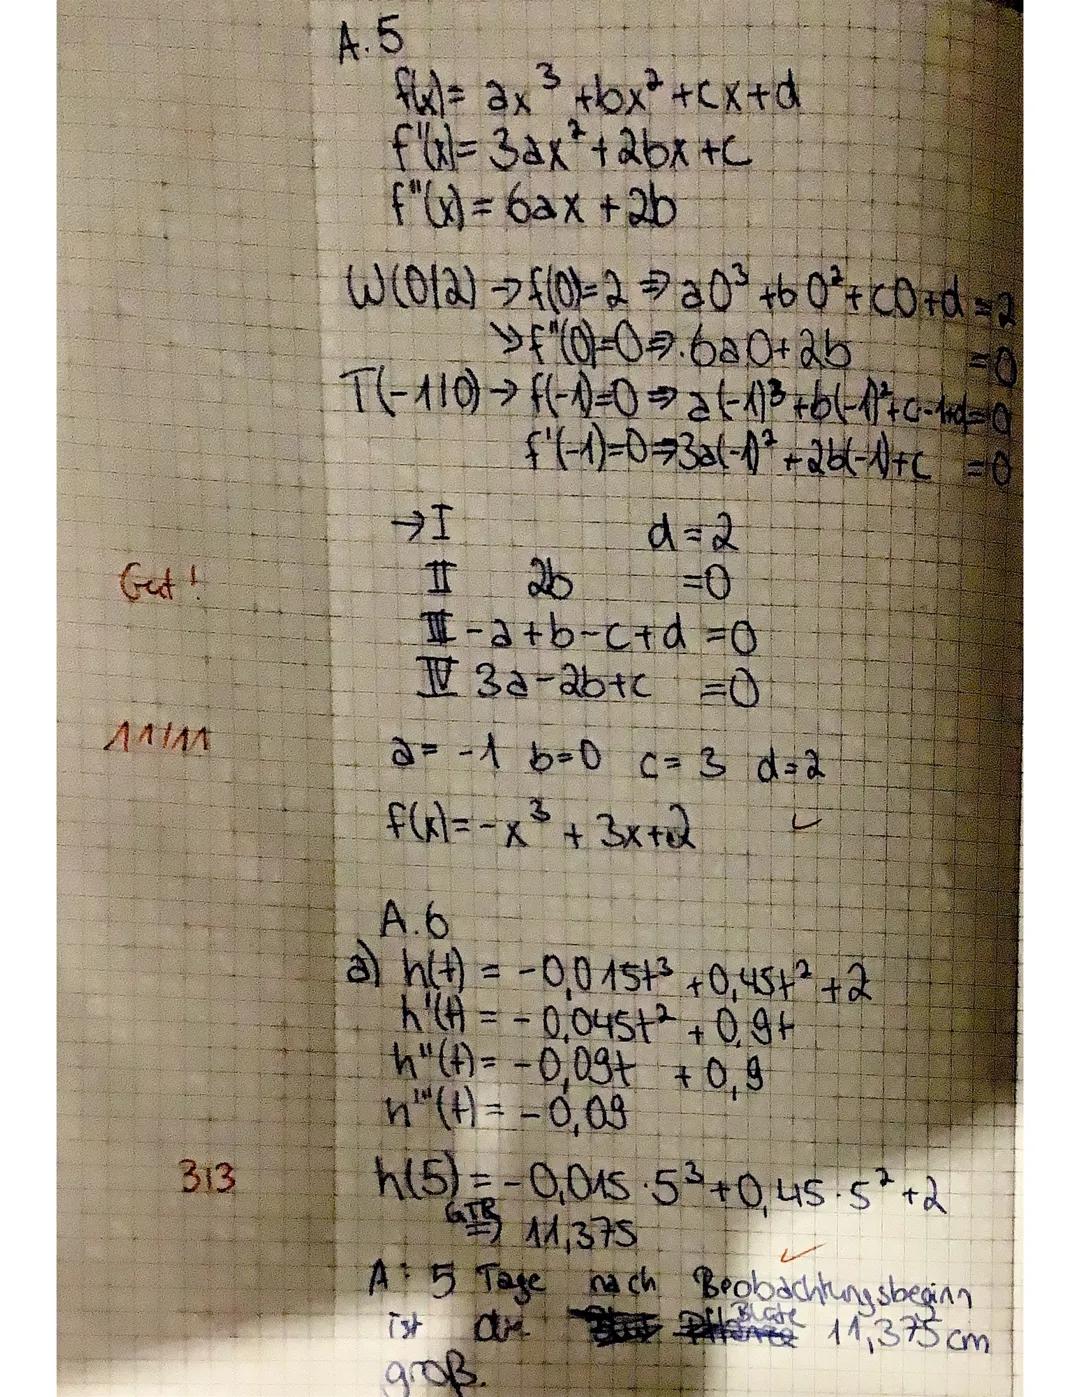 A.5
f(x)= ax³ +bx² +cx+d
f'(x)= 3ax² + 2bx +c
f"(x) = 6ax + 2b
W(0|2) → f(0)=2 ⇒ a0³ +b0² + c0 +d =2
→ f"(0)=0 ⇒ 6a0+2b =0
T(-1|0) → f(-1)=0 ⇒ a(-1)³ +b(-1)²+c·-1+d=0
f'(-1)=0 ⇒ 3a(-1)² + 2b(-1)+c =0
→ I d=2
Gut! II 2b =0
III -a+b-c+d =0
IV 3a-2b+c =0
11/11 a= -1 b=0 c= 3 d=2
f(x)= -x³ + 3x+2 ✓
A.6
a) h(t) = -0,015t³ +0,45t² +2
h'(t) = -0,045t² +0,9t
h"(t)= -0,09t +0,9
h'''(t) = -0,09
3/3 h(5) = -0,015·5³+0,45·5² +2
GTR ⇒ 11,375 ✓
A: 5 Tage nach Beobachtungsbeginn
ist die Blüte 11,375 cm
groß.